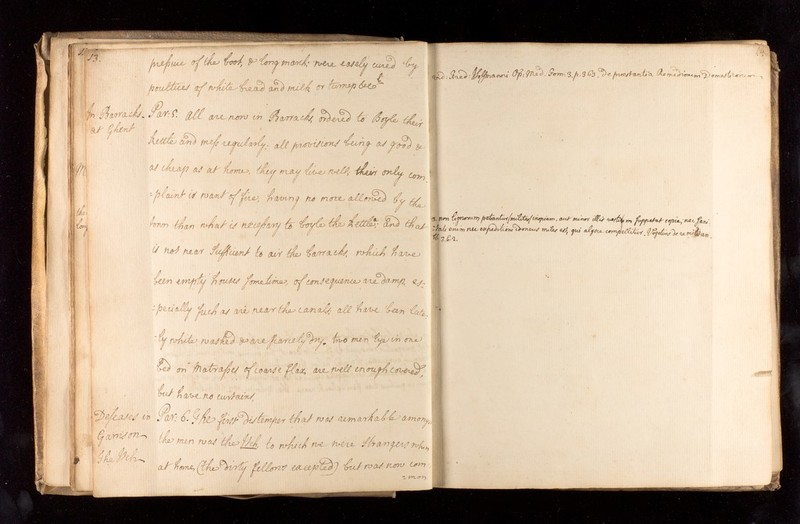 13.
pressure of the boot, & long march were easely cured by
poultices of white bread and milk or turneps &c
In Barracks
at Ghent
Par: 5. All are now in Barracks, ordered to Boyle their
kettle and mess regularly; all provisions being as good &
as cheap as at home, they may live well, their only com
=plaint is want of fire, having no more allowed by the
town than what is necessary to boyle the kettle, and that
is not near sufficient to air the barracks, which have
been empty houses sometime, of consequence are damp, es:
=pecially such as are near the canals, all have been late
=ly white washed & are scarcely dry. two men lye in one
bed on matrasses of coarse flax, are well enough covered,
but have no curtains.
Deseases in
Garrison
The Itch
Par: 6. The first Destemper that was remarkable among
the men was the Itch to which we were strangers when
at home, (the dirty fellows excepted) but was now com
=mon
Hoffmanni Op. Med. Tom: 3. p. 363. De praestantia Remediorum Domesticorum
non lignorum patiantur milites inopiam, aut minor illis vestium suppetat copia; nec
enim nec expeditioni idoneus miles est, qui algere compellitur. Vegetius de re